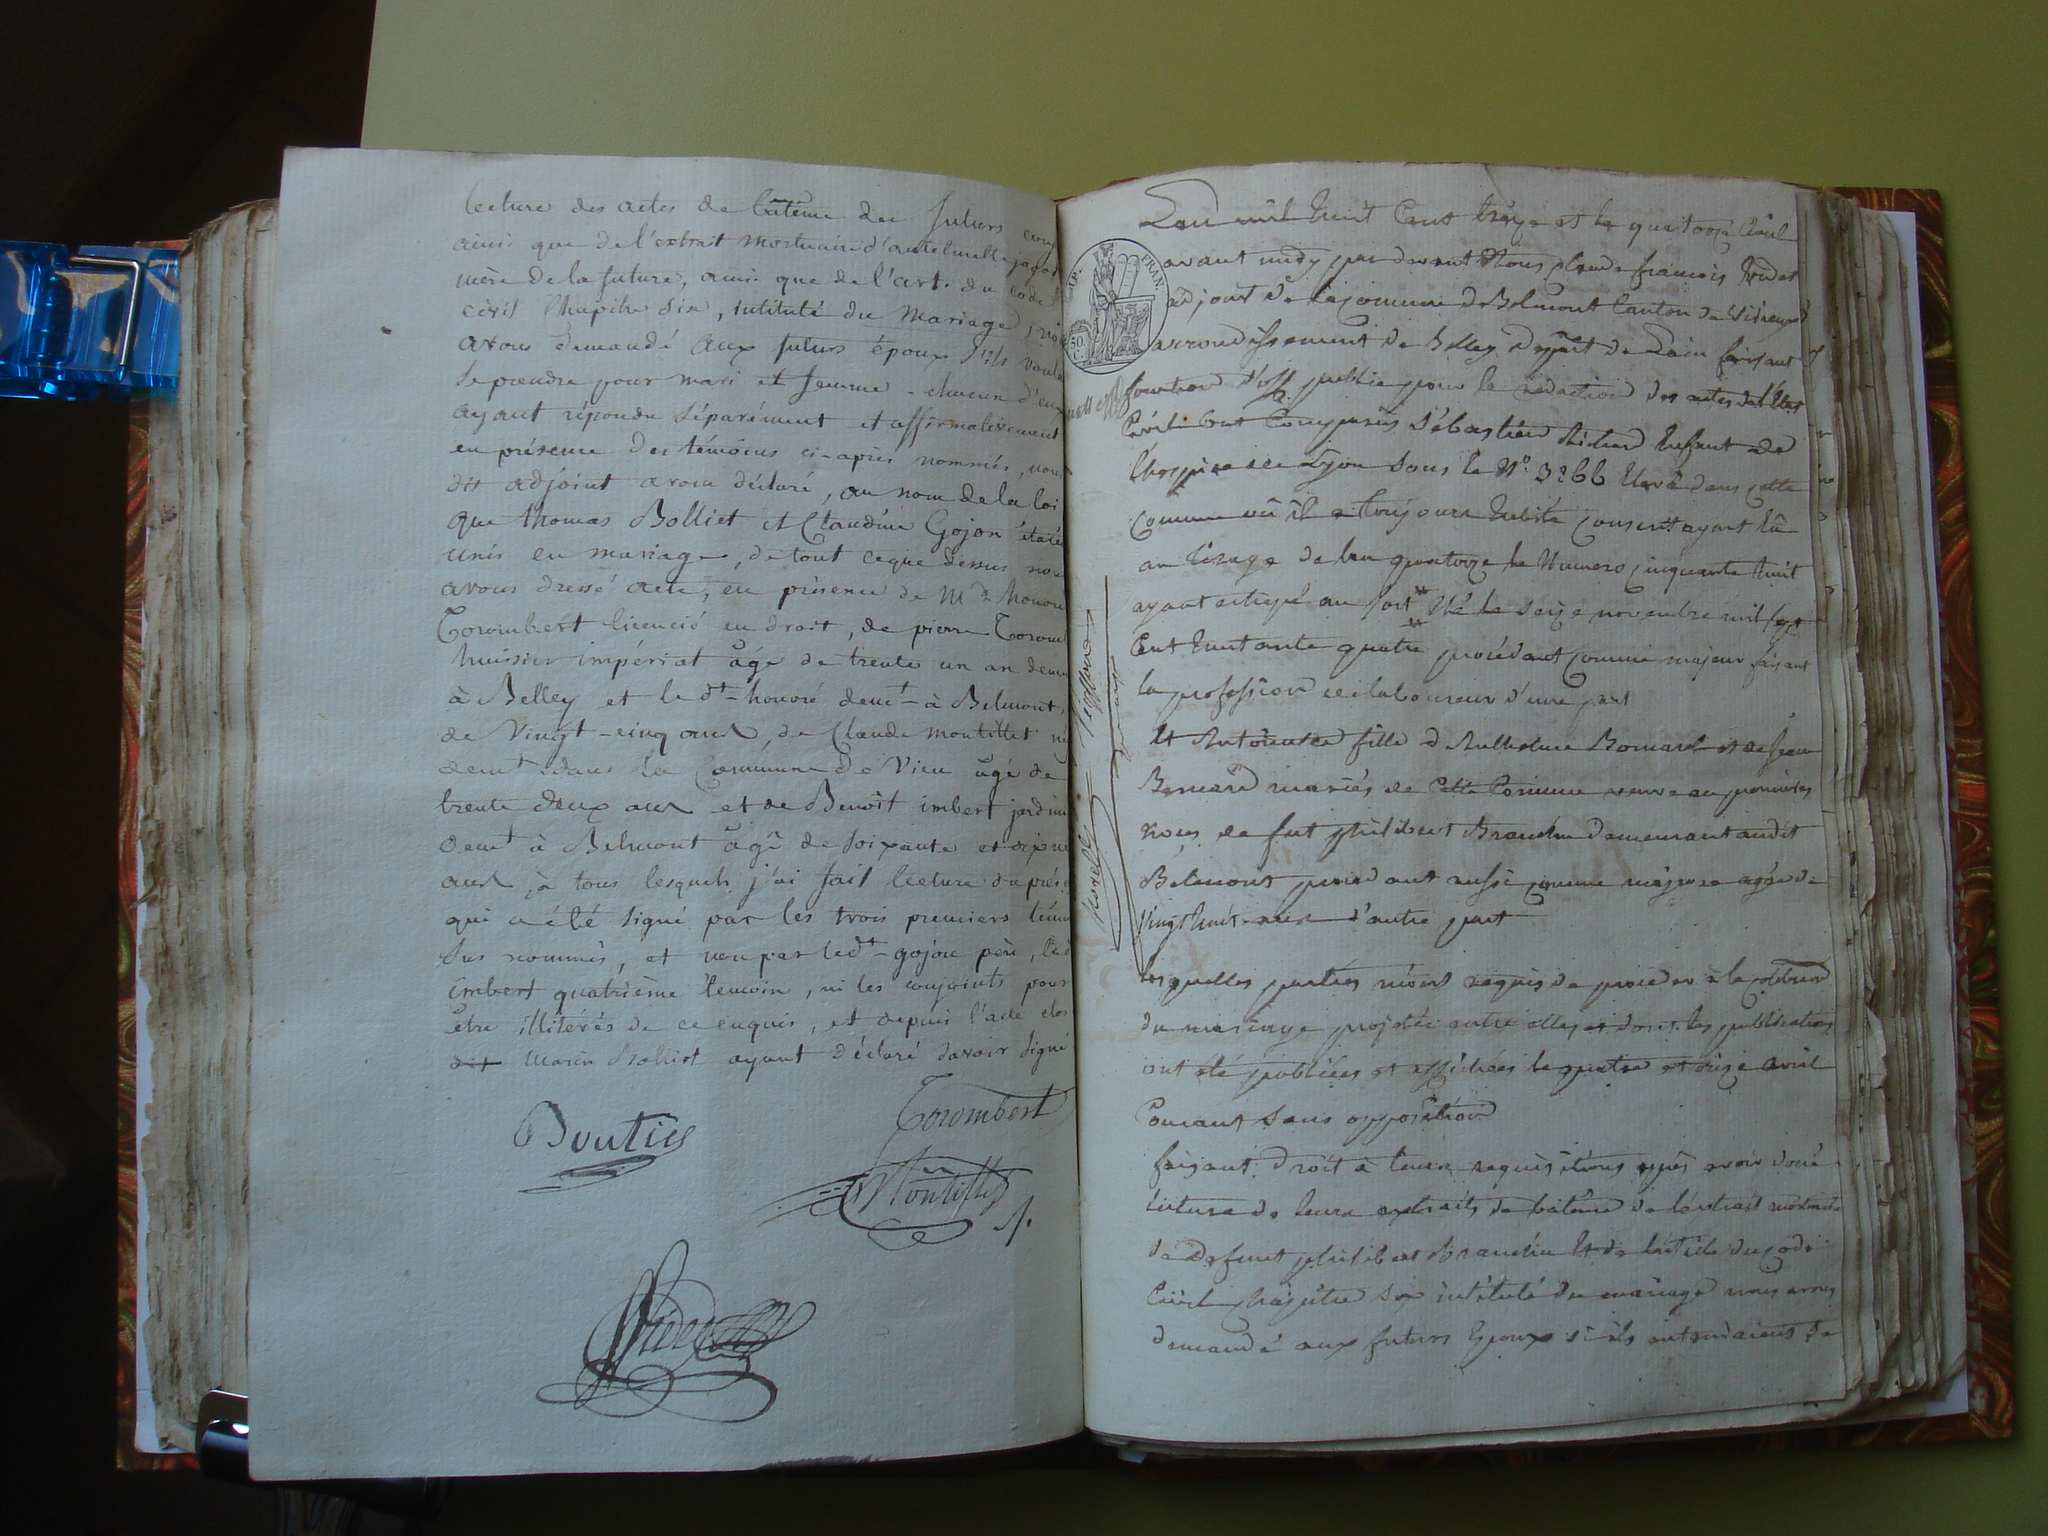 lecture des actes de batême des futurs conj
ainsi que de l'extrait mortuaire d'
mère de la future, ainsi que de l'art. du code
civil chapitre six, intitulé du mariage, nous
avons demandé aux futurs époux s'ils veule
se prendre pour mari et femme - chacun d'eux
ayant répondu séparément et affirmativement
en présence des témoins ci-après nommés, nous
dit adjoint avons déclaré, au nom de la loi
que thomas Bolliet et Claudine Gojon étaie
unis en mariage, de tout ce que dessus nous
avons dressé acte, en présence de Mrs honoré
Torombert licencié en droit, de pierre Toromb
huissier impérial âgé de trente un an deme
à Belley et le dt honoré demt à Belmont,
de Vingt-cinq ans, de Claude montillet
demt dans la Commune de Vieu âgé de
trente deux ans et de Benoît imbert jardini
demt à Belmont âgé de soixante et dix
ans, à tous lesquels j'ai fait lecture du prés
qui a été signé par les trois premiers témo
sus nommés, et non par le dt gojon père, le
imbert quatrième témoin, ni les conjoints pour
être illitérés de ce enquis, et depuis l'acte clos
dit marin Bolliet ayant déclaré savoir signé
Torombert
Montillet
L'an mil huit Cent treize et le quatorze avril
avant midy par devant Nous claude françois
adjoint de la commune de Belmont Canton de Virieu
arrondissement de Belley départ de Lain faisant
fonction d'off. public pour la rédaction des actes de l'état
Civil sont Comparus Sébastien Richard Enfant de
l'hospice de Lyon sous le No. 3266 Elevé dans cette
Commune où il a toujours habité ayant
au tirage de l'an quatorze le Numero cinquante huit
ayant échapé au sort Né le seize novembre mil sept
Cent huitante quatre procédant comme majeur faisant
la profession de laboureur d'une part
Et fille d'Anthelme Bornard et de
mariés de Cette Commune veuve en premières
noces de fut philibert demeurant audit
Belmont procédant aussi comme majeure agée de
vingt huit ans d'autre part
lesquelles parties m'ont requis de procéder à la célébration
du mariage projetté entre elles et dont les publications
ont été publiées et affichées le quatre et onze avril
Courant sans opposition
faisant droit à leurs requisitions après avoir doné
lecture de leurs extraits de batême de l'extrait mortuaire
de defunt philibert Et de l'article du code
Civil chapitre six intitulé du mariage nous avons
demandé aux futurs Epoux si ils entendaient se